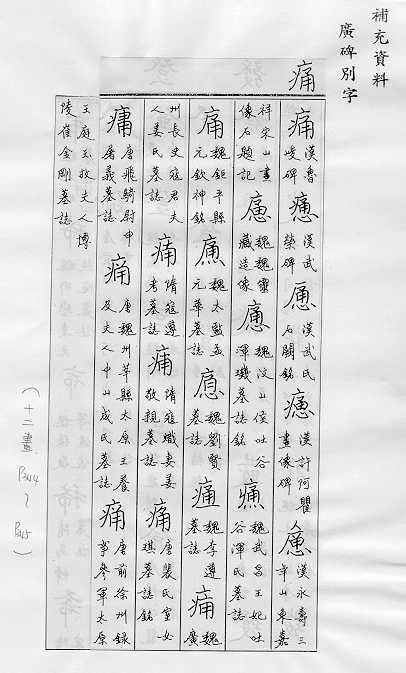 補充資料
廣碑別字
痛
痛 漢魯峻碑 漢武榮碑 漢武氏石闕銘 漢許阿瞿畫像碑 漢永壽三年山東嘉
祥宋山畫像石題記 魏魏靈藏造像 魏汶山侯吐谷渾璣墓誌銘 魏武昌王妃吐谷渾氏墓誌
痛 魏鉅平縣元欽神銘 魏太監孟元華墓誌 魏劉賢墓誌 魏李遵墓誌 痛 魏廣
州長史寇君夫人姜氏墓誌 隋寇遵考墓誌 隋寇熾妻姜敬親墓誌 痛 唐裴氏室女琪墓誌銘
唐飛騎尉申屠義墓誌 痛 唐魏州莘縣太原王養及夫人中山成氏墓誌 痛 唐前徐州錄事參軍太原
王庭玉故夫人博陵崔金剛墓誌
(十二畫 P344~P345)